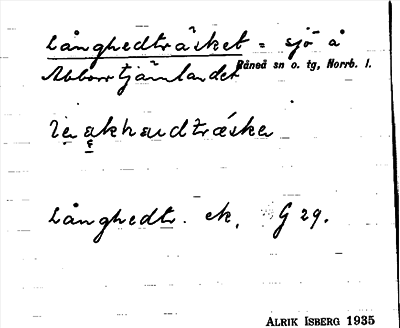 Långhedträsket = sjö å
Abborrtjärnlandet Råneå sn o. tg, Norrb. l.
Långhedtr. ek. G 29.
ALRIK ISBERG 1935